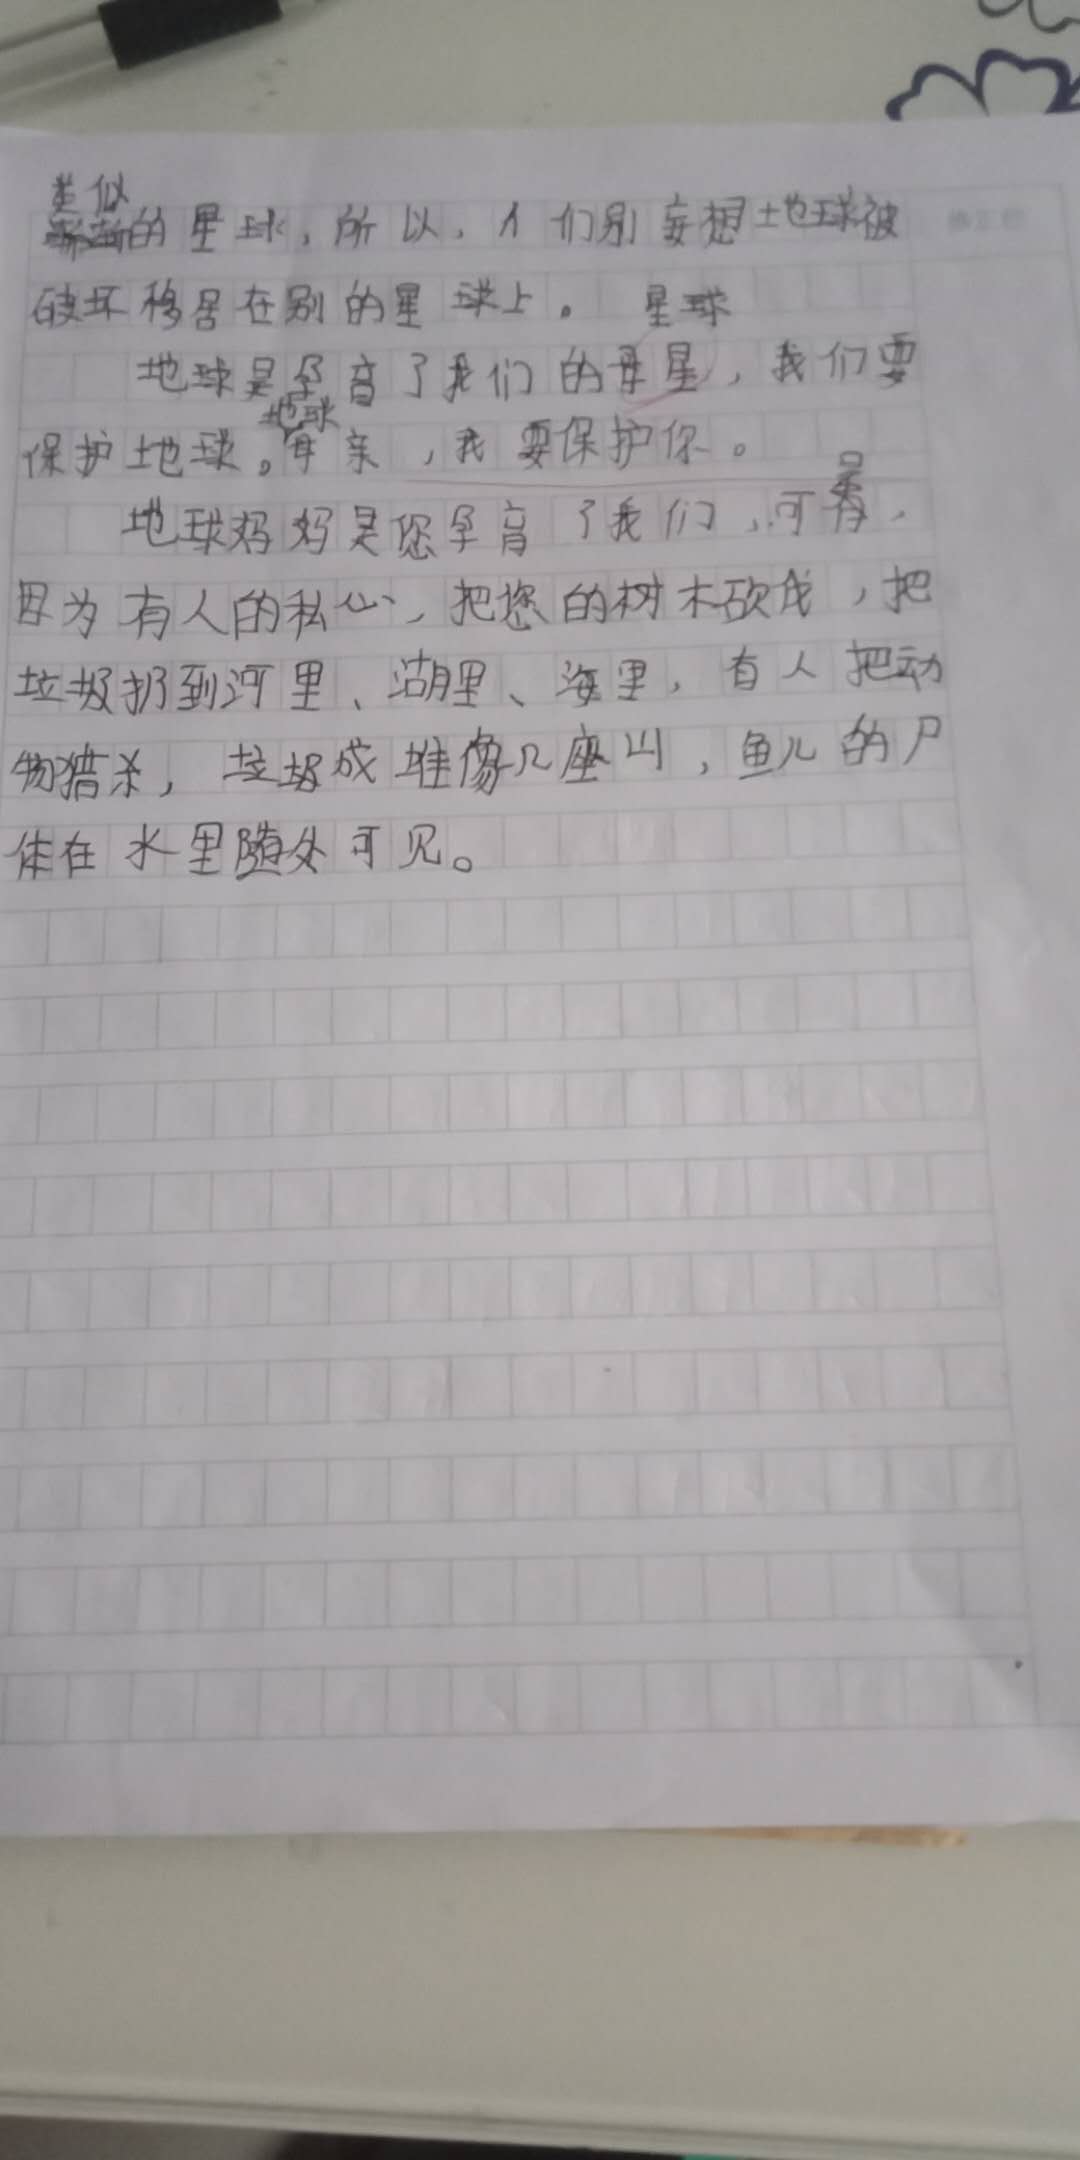 类似
的星球，所以，人们别妄想地球被
破坏移居在别的星球上。
星球
地球是孕育了我们的母星，我们要
地球
保护地球。母亲，我要保护你。
是
地球妈妈是您孕育了我们，可
因为有人的私心，把您的树木砍伐，把
垃圾扔到河里、湖里、海里，有人把动
物猎杀，垃圾成堆像几座山，鱼儿的尸
体在水里随处可见。